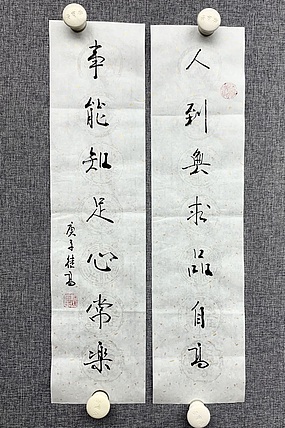 人到無求品自高
事能知足心常樂
庚子